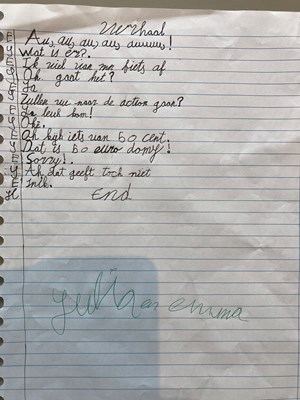 verhaal
Au, au, au, au, auuuu!
Wat is er?.
Ik viel van mn fiets af
Oh. gaat het?
Ja
Zullen we naar de action gaan?
Ja leuk kom!
Oke.
Oh kijk iets van 50 cent.
Dat is 50 euro domy!
Sorry!.
Ah dat geeft toch niet
End
Yulia en emma